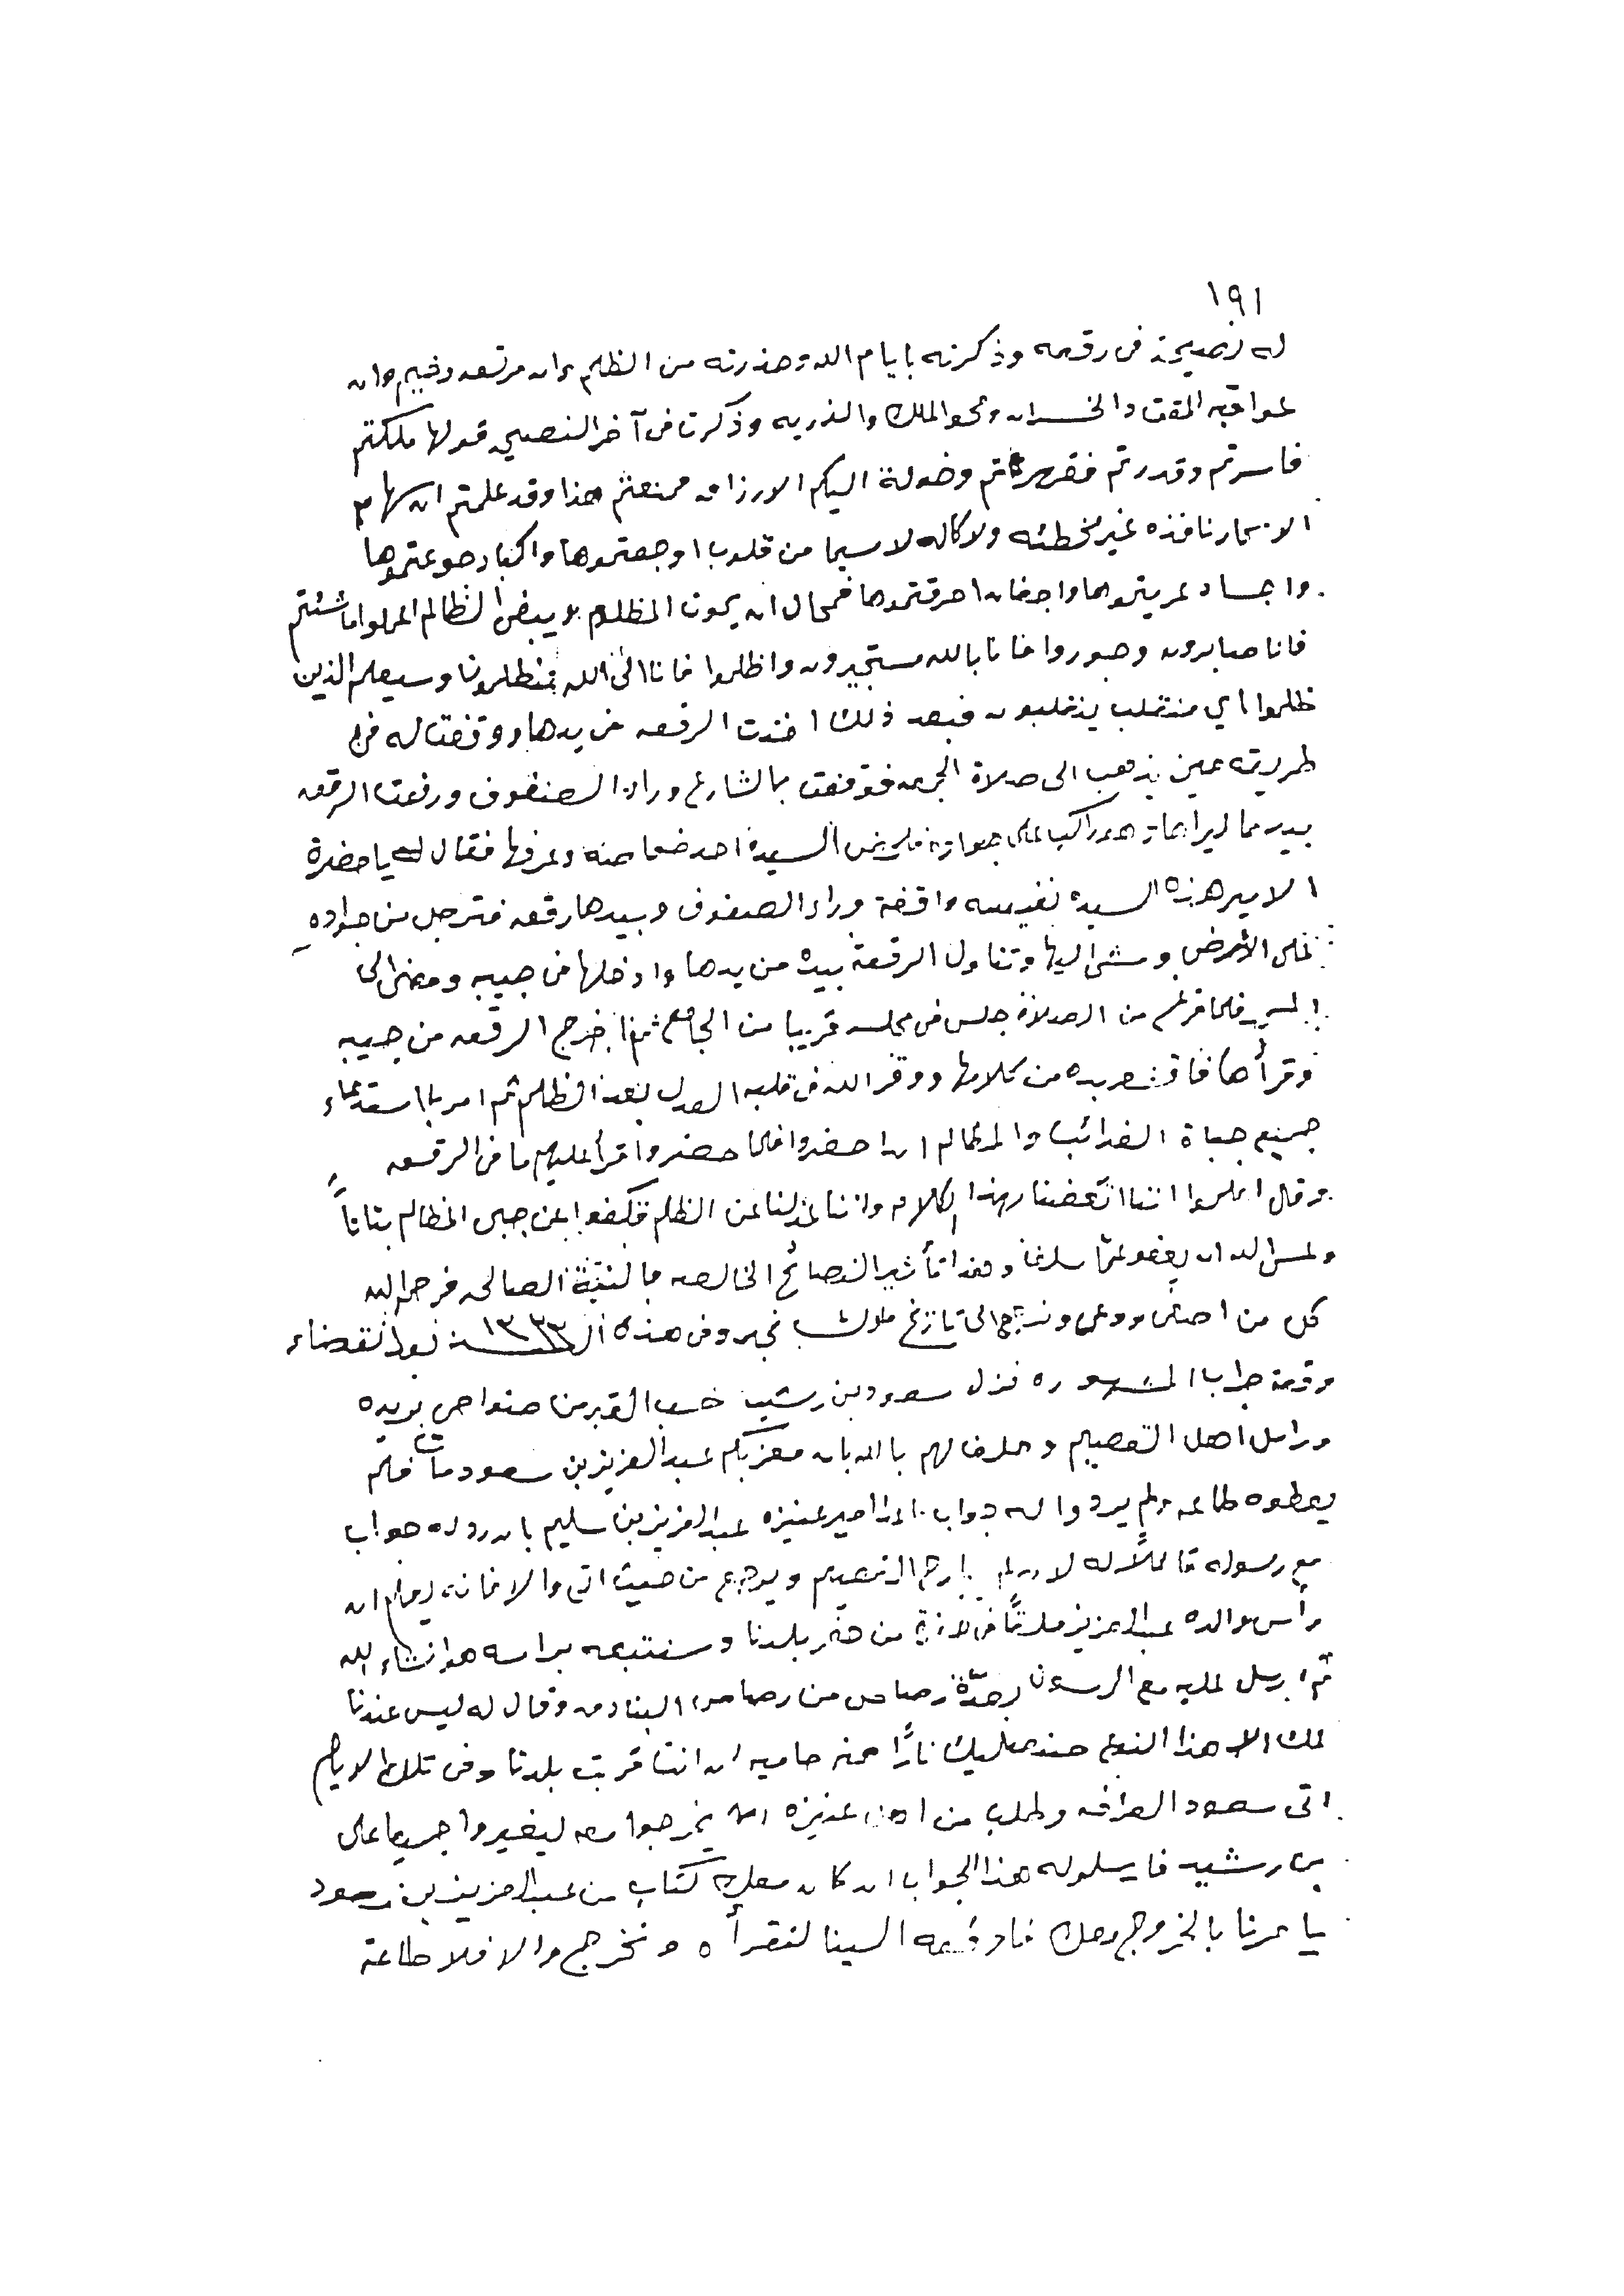 ١٩١
له نصيحة في رقعه وذكرته بايام الله وحذرته من الظلم وان مرتعه وخيم وان
عواقبه المقت والخسران ومحو الملك والذريه وذكرت في آخر النصيحه قولها ملكتم
فاسرتم وقدرتم فقهرتم وخولة اليكم الارزاق فمنعتم هذا وقد علمتم ان سهام
الاسحار نافذه غير مخطئه ولا كاله لا سيما من قلوب اوجعتموها واكباد جوعتموها
واجساد عريتموها واجفان احرقتموها فمحال ان يموت المظلوم ويبقى الظالم اعملوا ما شئتم
فانا صابرون وجوروا فانا بالله مستجيرون واظلموا فانا الى الله متظلمونا وسيعلم الذين
ظلموا اي منقلب ينقلبون فبعد ذلك اخذت الرقعه في يدها ووقفت له في
طريقه حين يذهب الى صلاة الجمعه فوقفت بالشارع وراء الصفوف ورفعت الرقعه
بيدها ليراها وهو راكب على جواده فلمح السيدة احد خواصه وعرفها فقال له يا حضرة
الامير هذه السيده نفيسه واقفة وراء الصفوف وبيدها رقعه فترجل من جواده
على الأرض ومشى اليها وتناول الرقعة بيده من يدها وادخلها في جيبه ومضى الى
المسجد فلما فرغ من الصلاة جلس في مجلسه قريبا من الجامع ثم اخرج الرقعه من جيبه
وقرأها فاقشعر بدنه من كلامها ووقر الله في قلبه العدل بعد الظلم ثم امر باستدعاء
جميع جباة الضرائب والمظالم ان احضروا فلما حضروا قرأ عليهم ما في الرقعه
وقال اعلموا اننا اتعضنا بهذا الكلام واننا عدلنا عن الظلم فكفوا عن جبي المظالم بتاتاً
وعسى الله ان يعفو عما سلف وهذا تأثير النصائح الخالصه بالنيّة الصالحه فرحم الله
كل من اصغى ووعى ونرجع الى تاريخ ملوك نجد وفي هذه السنة ١٣٣٣ بعد انقضاء
وقعة جراب المشهوره نزل سعود بن رشيد خب القبر من ضواحي بريده
وراسل اهل القصيم وحلف لهم بالله بان معزبكم عبدالعزيز بن سعود مات فلم
يعطوه طاعه ولم يردوا له جواب الا امير عنيزه عبدالعزيز بن سليم بان رد له جواب
مع رسوله قائلاً له لا بد ان يبارح القصيم ويرجع من حيث اتى والا فانه يعلم ان
رأس والده عبدالعزيز ملقًا في لازقة من حفر بلدنا وسنتبعه براسه هو انشاء الله
ثم ارسل عليه مع الرسول بعدّة رصاص من رصاص البنادق وقال له ليس عندنا
لك الا هذا النوع حنصليك نارًا منه حاميه ان انت قربت بلدنا وفي تلك الايام
اتى سعود العرافه وطلب من اهل عنيزه ان يخرجوا معه ليغيروا جميعا على
بن رشيد فارسلوا له هذا الجواب ان كان معك كتاب من عبدالعزيز بن سعود
يامرنا بالخروج معك فادفعه الينا لنقرأه ونخرج والا فلا طاعة